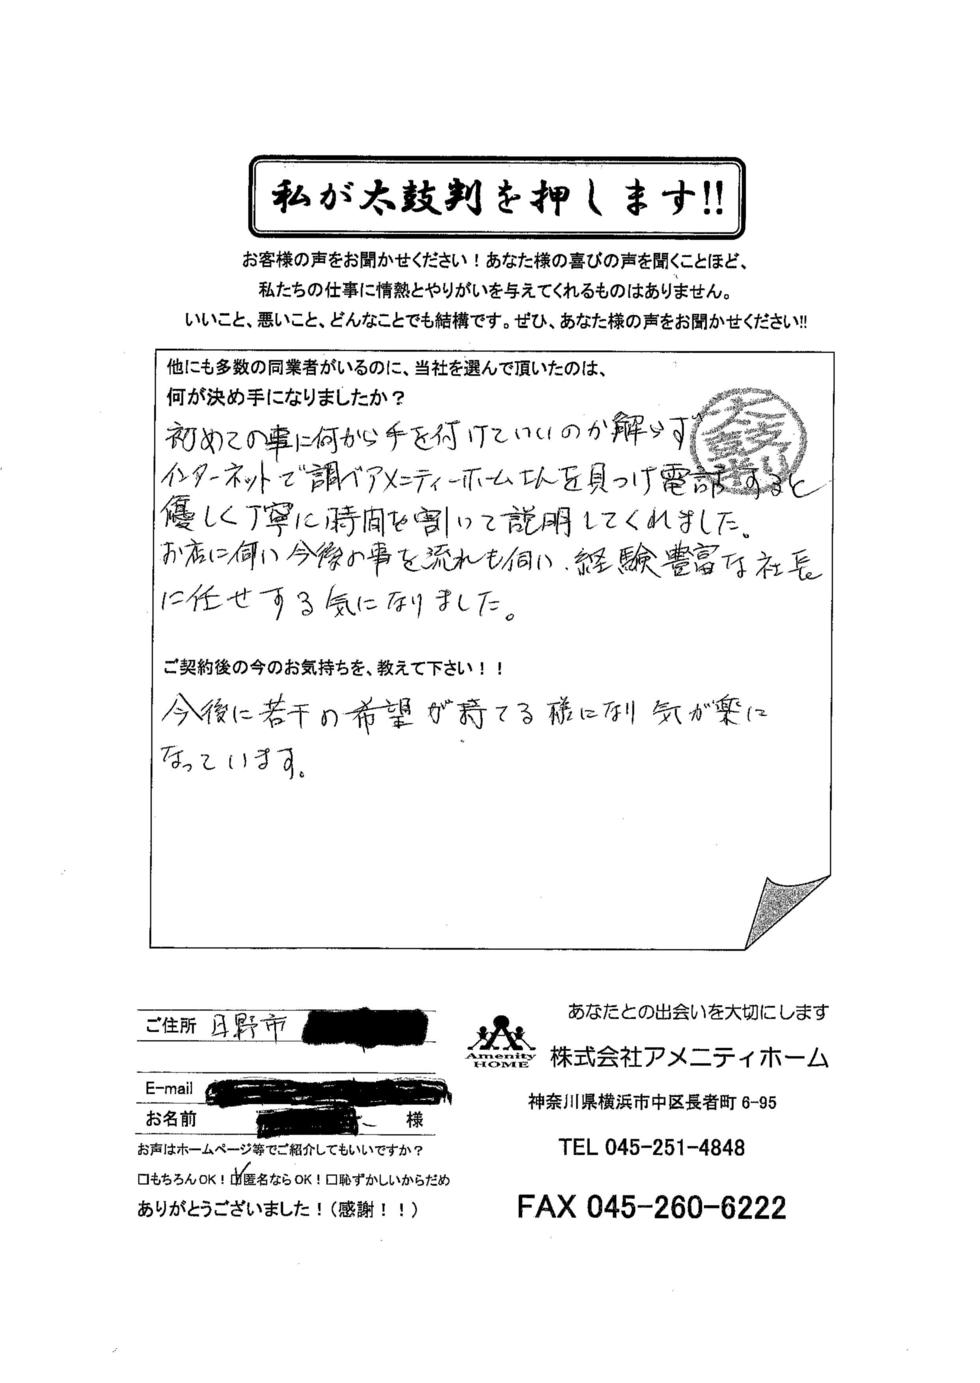 私が太鼓判を押します!!
お客様の声をお聞かせください！あなた様の喜びの声を聞くことほど、
私たちの仕事に情熱とやりがいを与えてくれるものはありません。
いいこと、悪いこと、どんなことでも結構です。ぜひ、あなた様の声をお聞かせください!!
他にも多数の同業者がいるのに、当社を選んで頂いたのは、
何が決め手になりましたか？
太鼓判
初めての事に何から手を付けていいのか解らず
インターネットで調べアメニティーホームさんを見つけ電話すると
優しく丁寧に時間を割いて説明してくれました。
お店に伺い今後の事を流れも伺い、経験豊富な社長
に任せする気になりました。
ご契約後の今のお気持ちを、教えて下さい！！
今後に若干の希望が持てる様になり気が楽に
なっています。
ご住所 日野市
E-mail
お名前 様
お声はホームページ等でご紹介してもいいですか？
□もちろんOK！☑匿名ならOK！□恥ずかしいからだめ
ありがとうございました！（感謝！！）
あなたとの出会いを大切にします
Amenity
HOME
株式会社アメニティホーム
神奈川県横浜市中区長者町 6-95
TEL 045-251-4848
FAX 045-260-6222